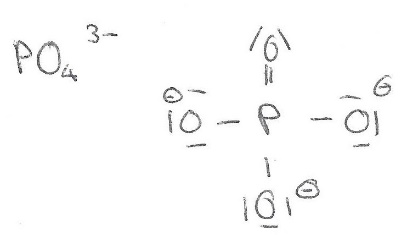 PO₄³⁻
O
O – P – O
O